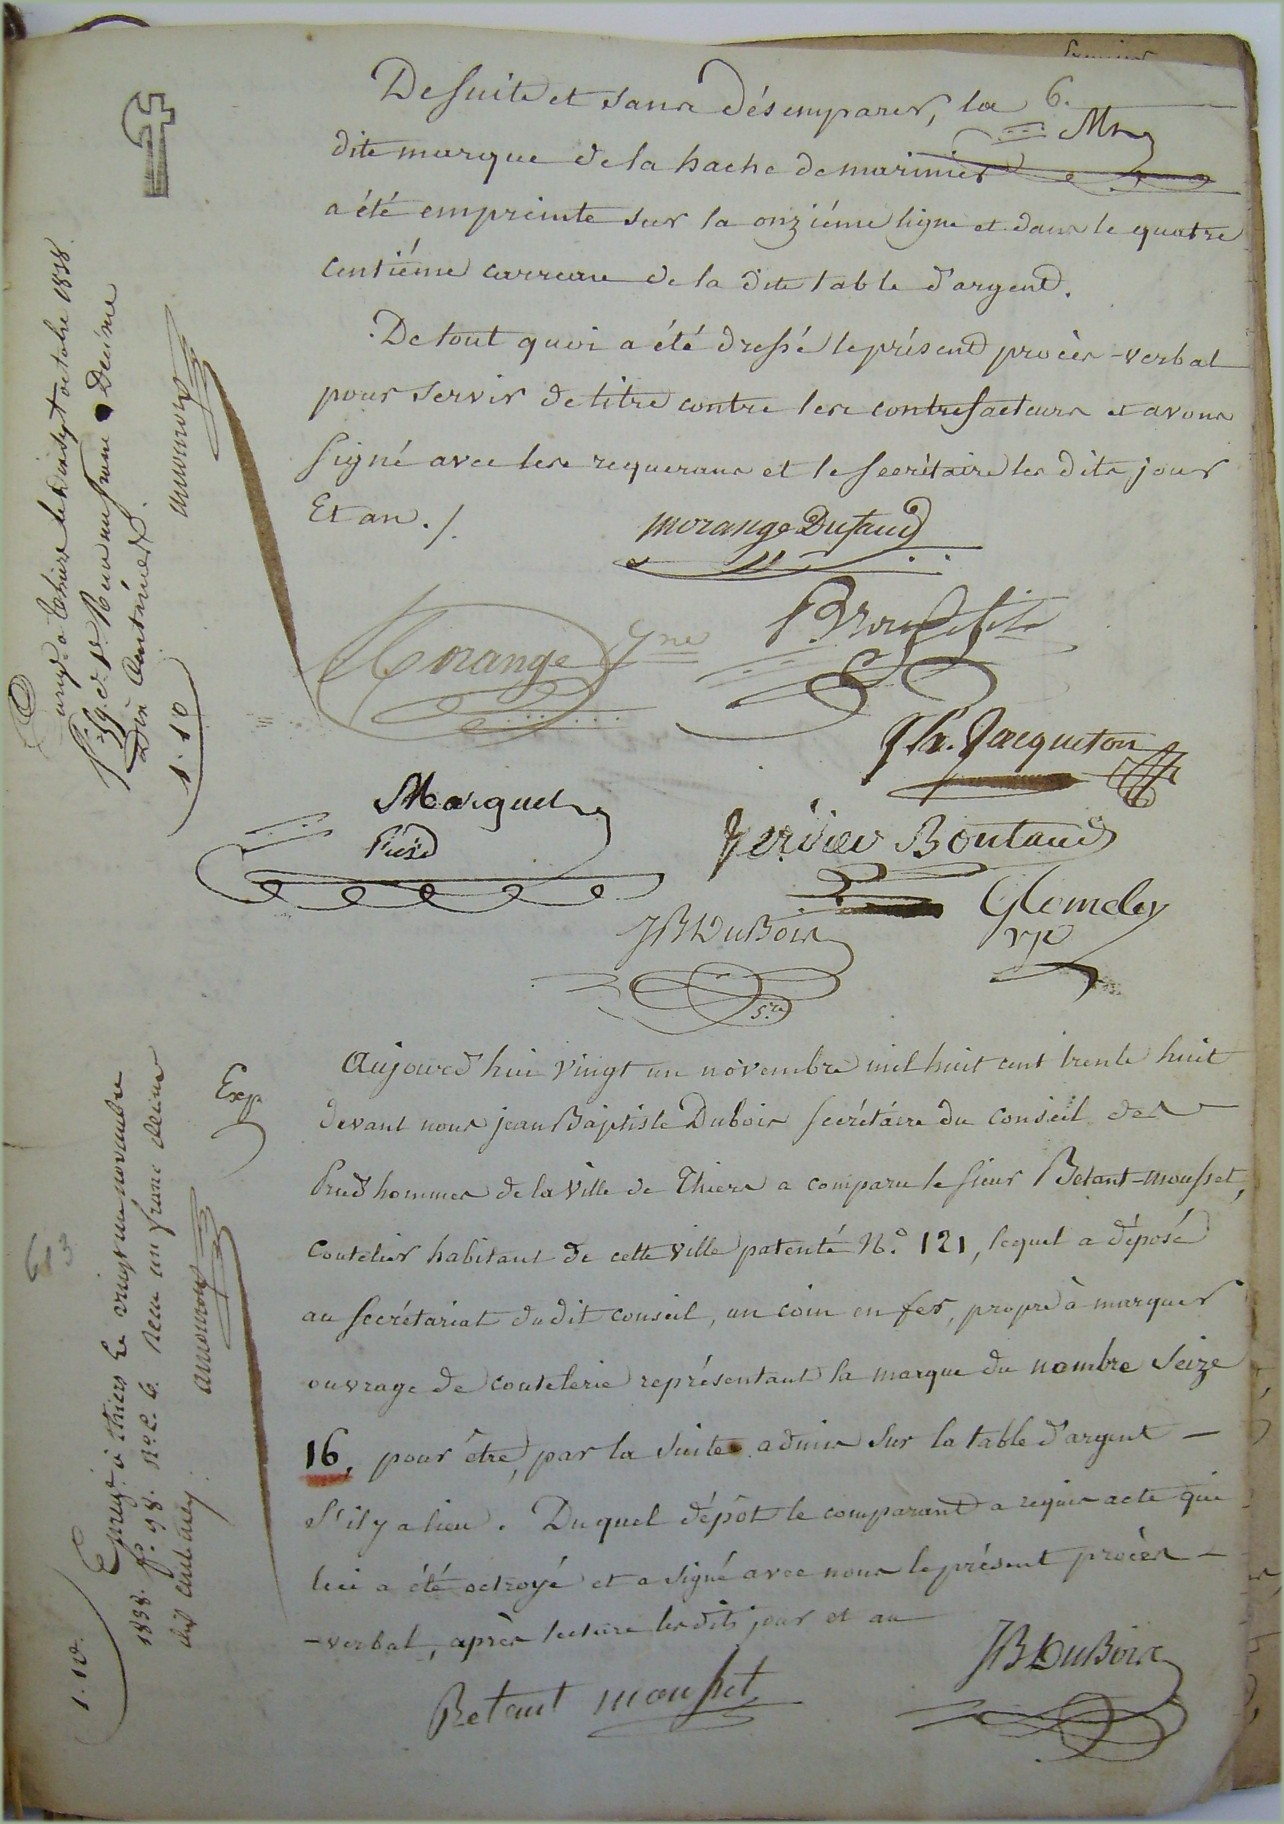 6.
Mn
De suite et sans désemparer, la
dite marque de la hache de marinier
a été empreinte sur la onziéme ligne et dans le quatre
centiéme carreau de la dite table d'argent.
De tout quoi a été dressé le présent procès-verbal
pour servir de titre contre les contrefacteurs et avons
signé avec les requerans et le secrétaire les dits jour
Et an ./.
morange Dufaud
Morange Jne
Jh. Jacqueton
Marquet
Présd
Verdier Boutaud
JB DuBois
Sre
Glomeley
VP
Enregé a thiers le dix sept octobre 1838.
Reçu un franc Decime
Dix Centimes
1.10
Exp
Aujourd'hui vingt un novembre mil huit cent trente huit
devant nous jean Baptiste Dubois secrétaire du conseil des
Prud'hommes de la ville de Thiers a comparu le sieur Betant-mousset,
coutelier habitant de cette ville patenté N.° 121, lequel a déposé
au secrétariat dudit conseil, un coin en fer, propre à marquer
ouvrage de coutelerie représentant la marque du nombre seize
16, pour être, par la suite admis sur la table d'argent –
s'il y a lieu. Duquel dépôt le comparant a requis acte qui
lui a été octroyé et a signé avec nous le présent procès –
– verbal, après lecture les dits jour et an
JB DuBois
Betant mousset
613
Enregé à thiers Le vingt un novembre
1838. f.° 98. R.° c. 6. Reçu un franc decime
dix centimes.
1.10.